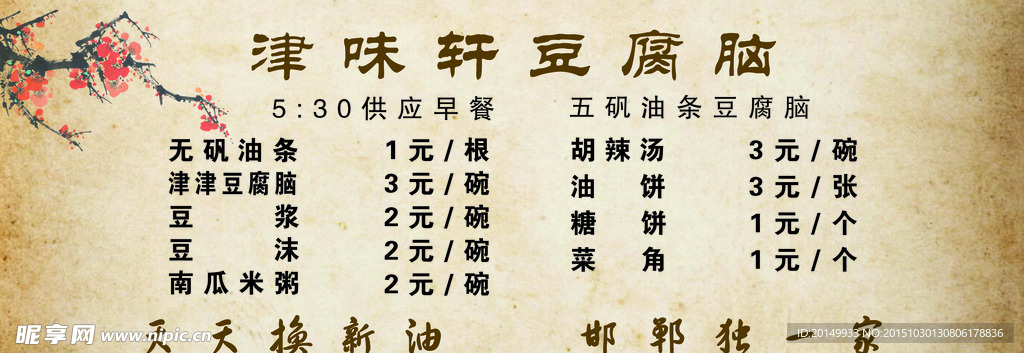 津味轩豆腐脑
5:30供应早餐 五矾油条豆腐脑
无矾油条 1元/根
津津豆腐脑 3元/碗
豆浆 2元/碗
豆沫 2元/碗
南瓜米粥 2元/碗
胡辣汤 3元/碗
油饼 3元/张
糖饼 1元/个
菜角 1元/个
天天换新油 邯郸独一家
昵享网 www.nipic.cn
ID:20149933 NO:20151030130806178836